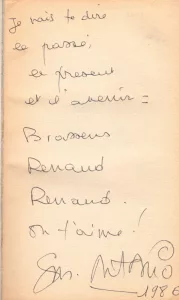 Je vais te dire
le passé,
le present
et l'avenir =
Brassens
Renaud
Renaud.
on t'aime!
San-Antonio
1986